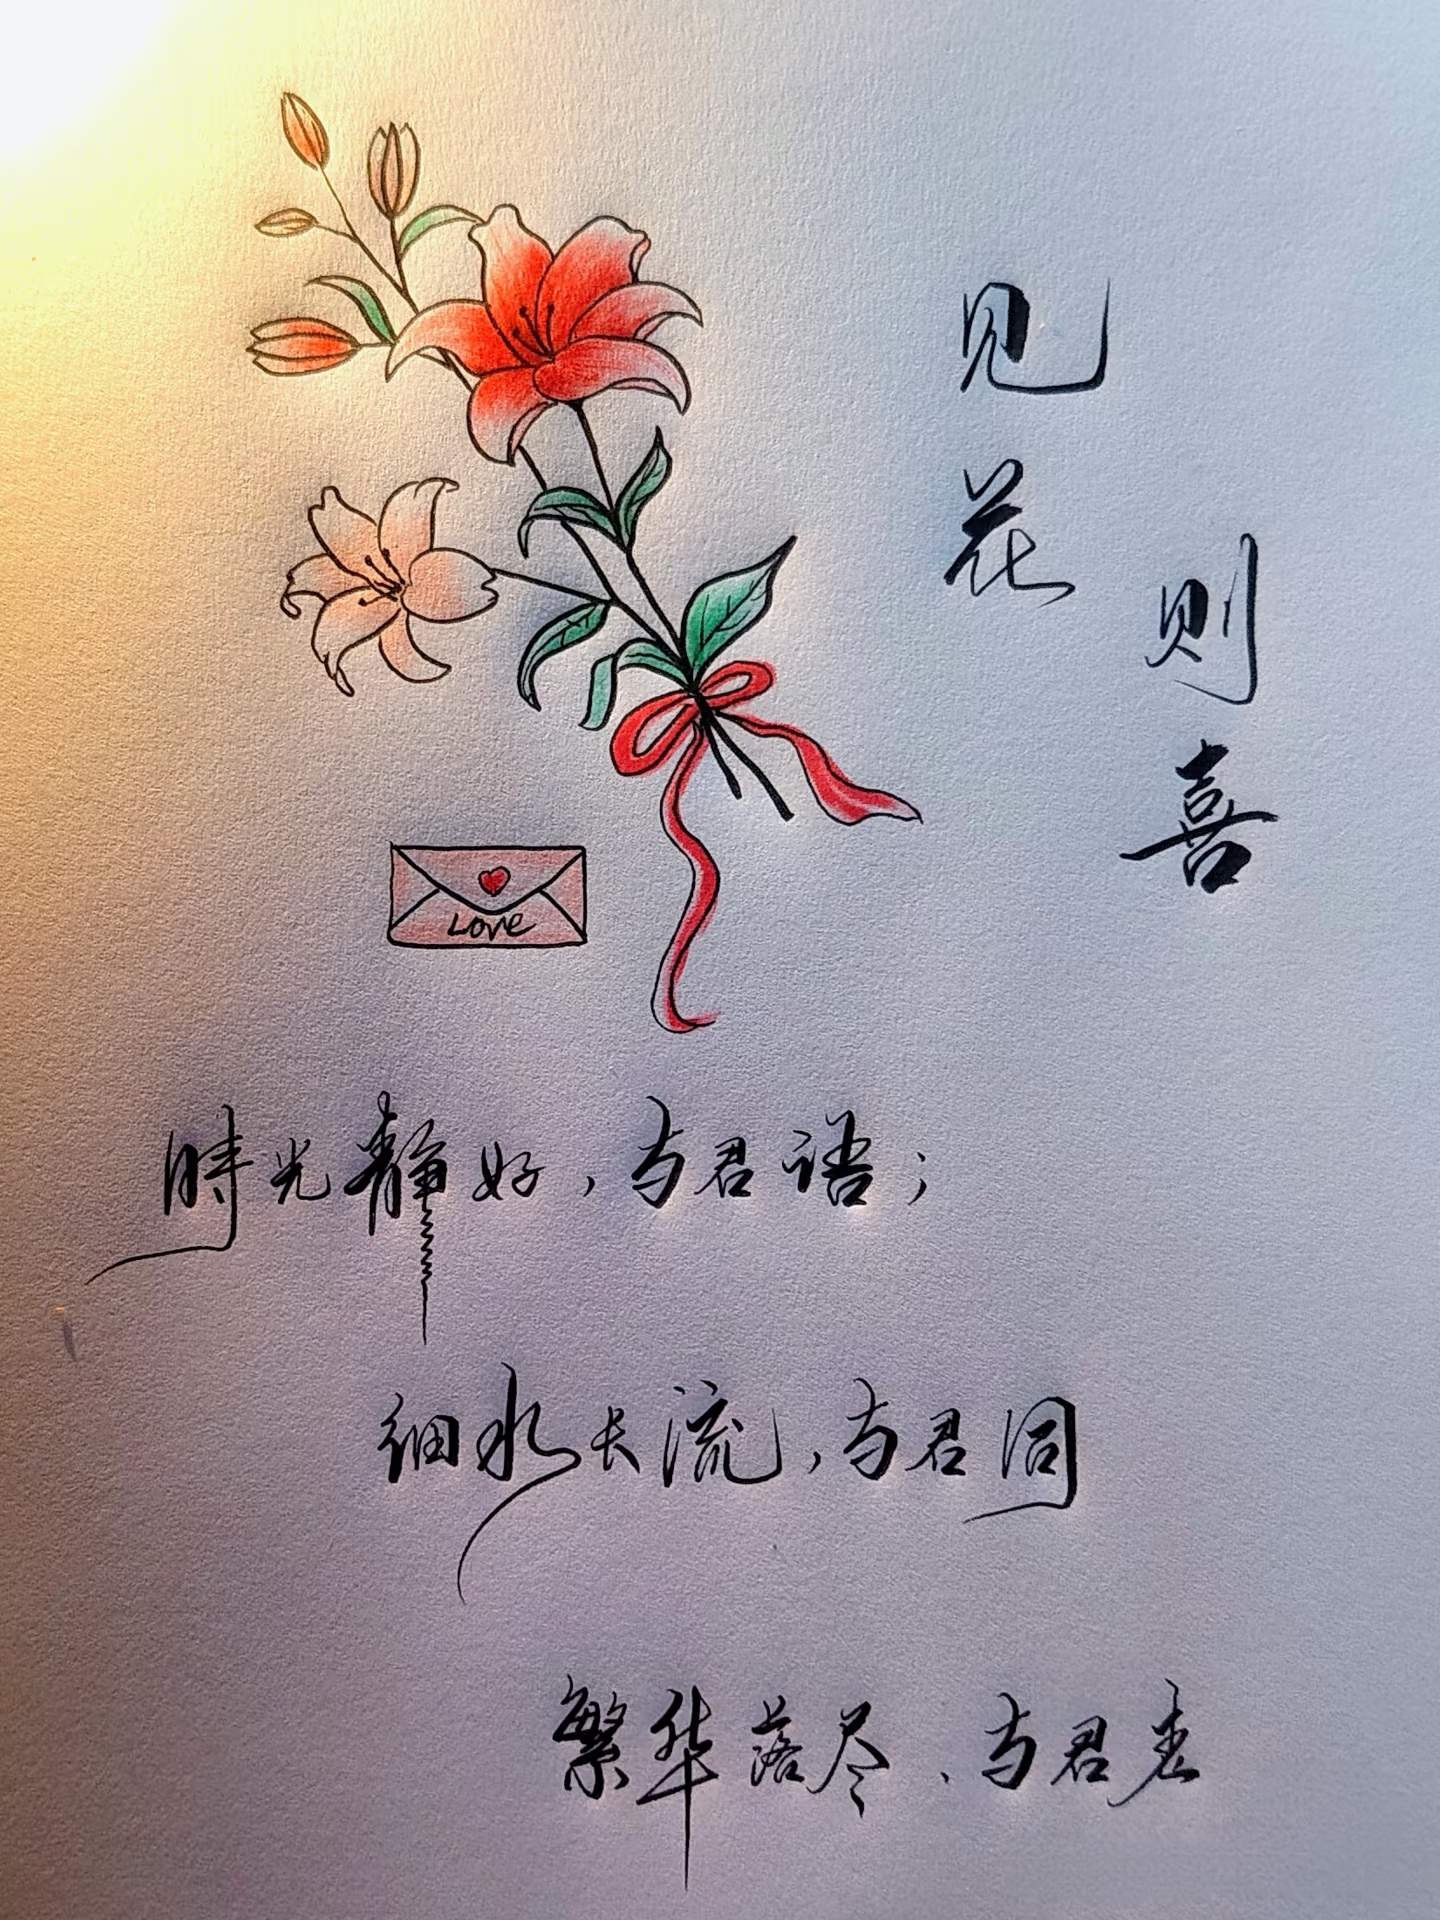 见花
则喜
Love
時光静好，与君语；
细水长流，与君同
繁华落尽、与君老